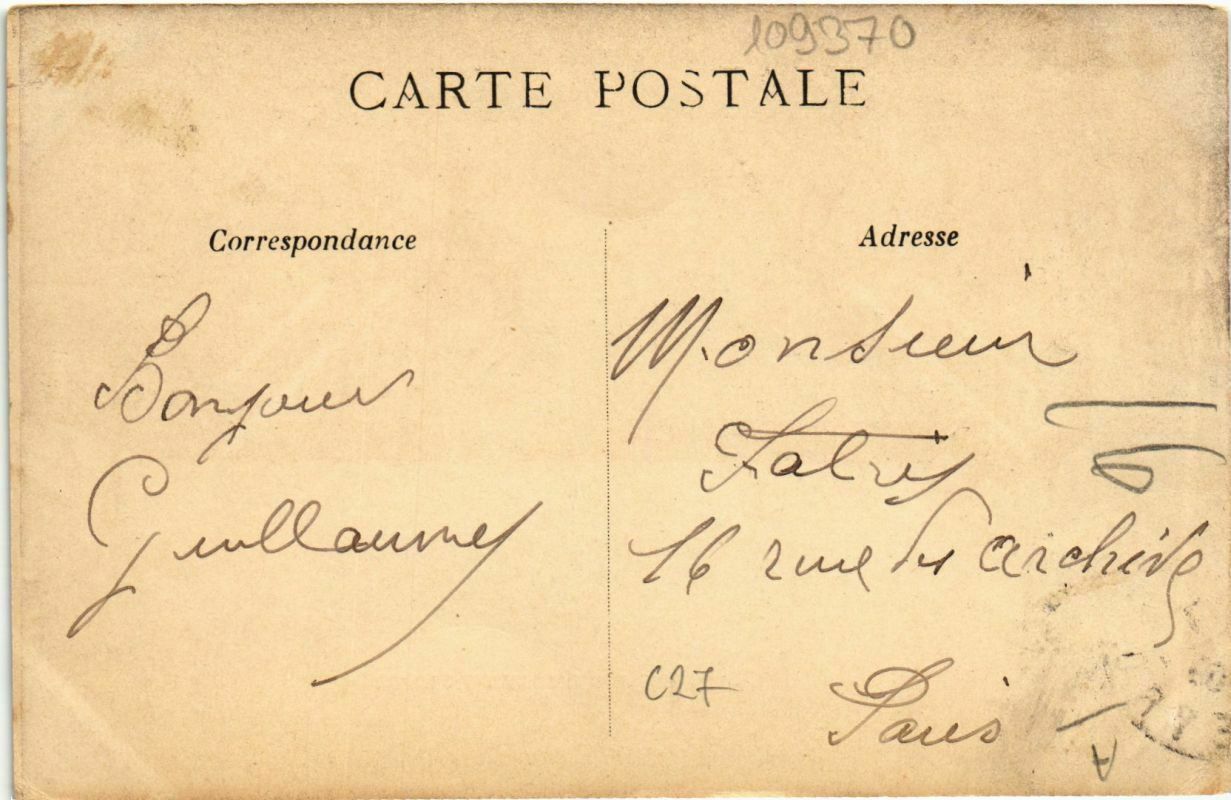 109370
CARTE POSTALE
Correspondance
Bonjour
Guillaume
Adresse
Monsieur
16 rue des archives
Paris
C27